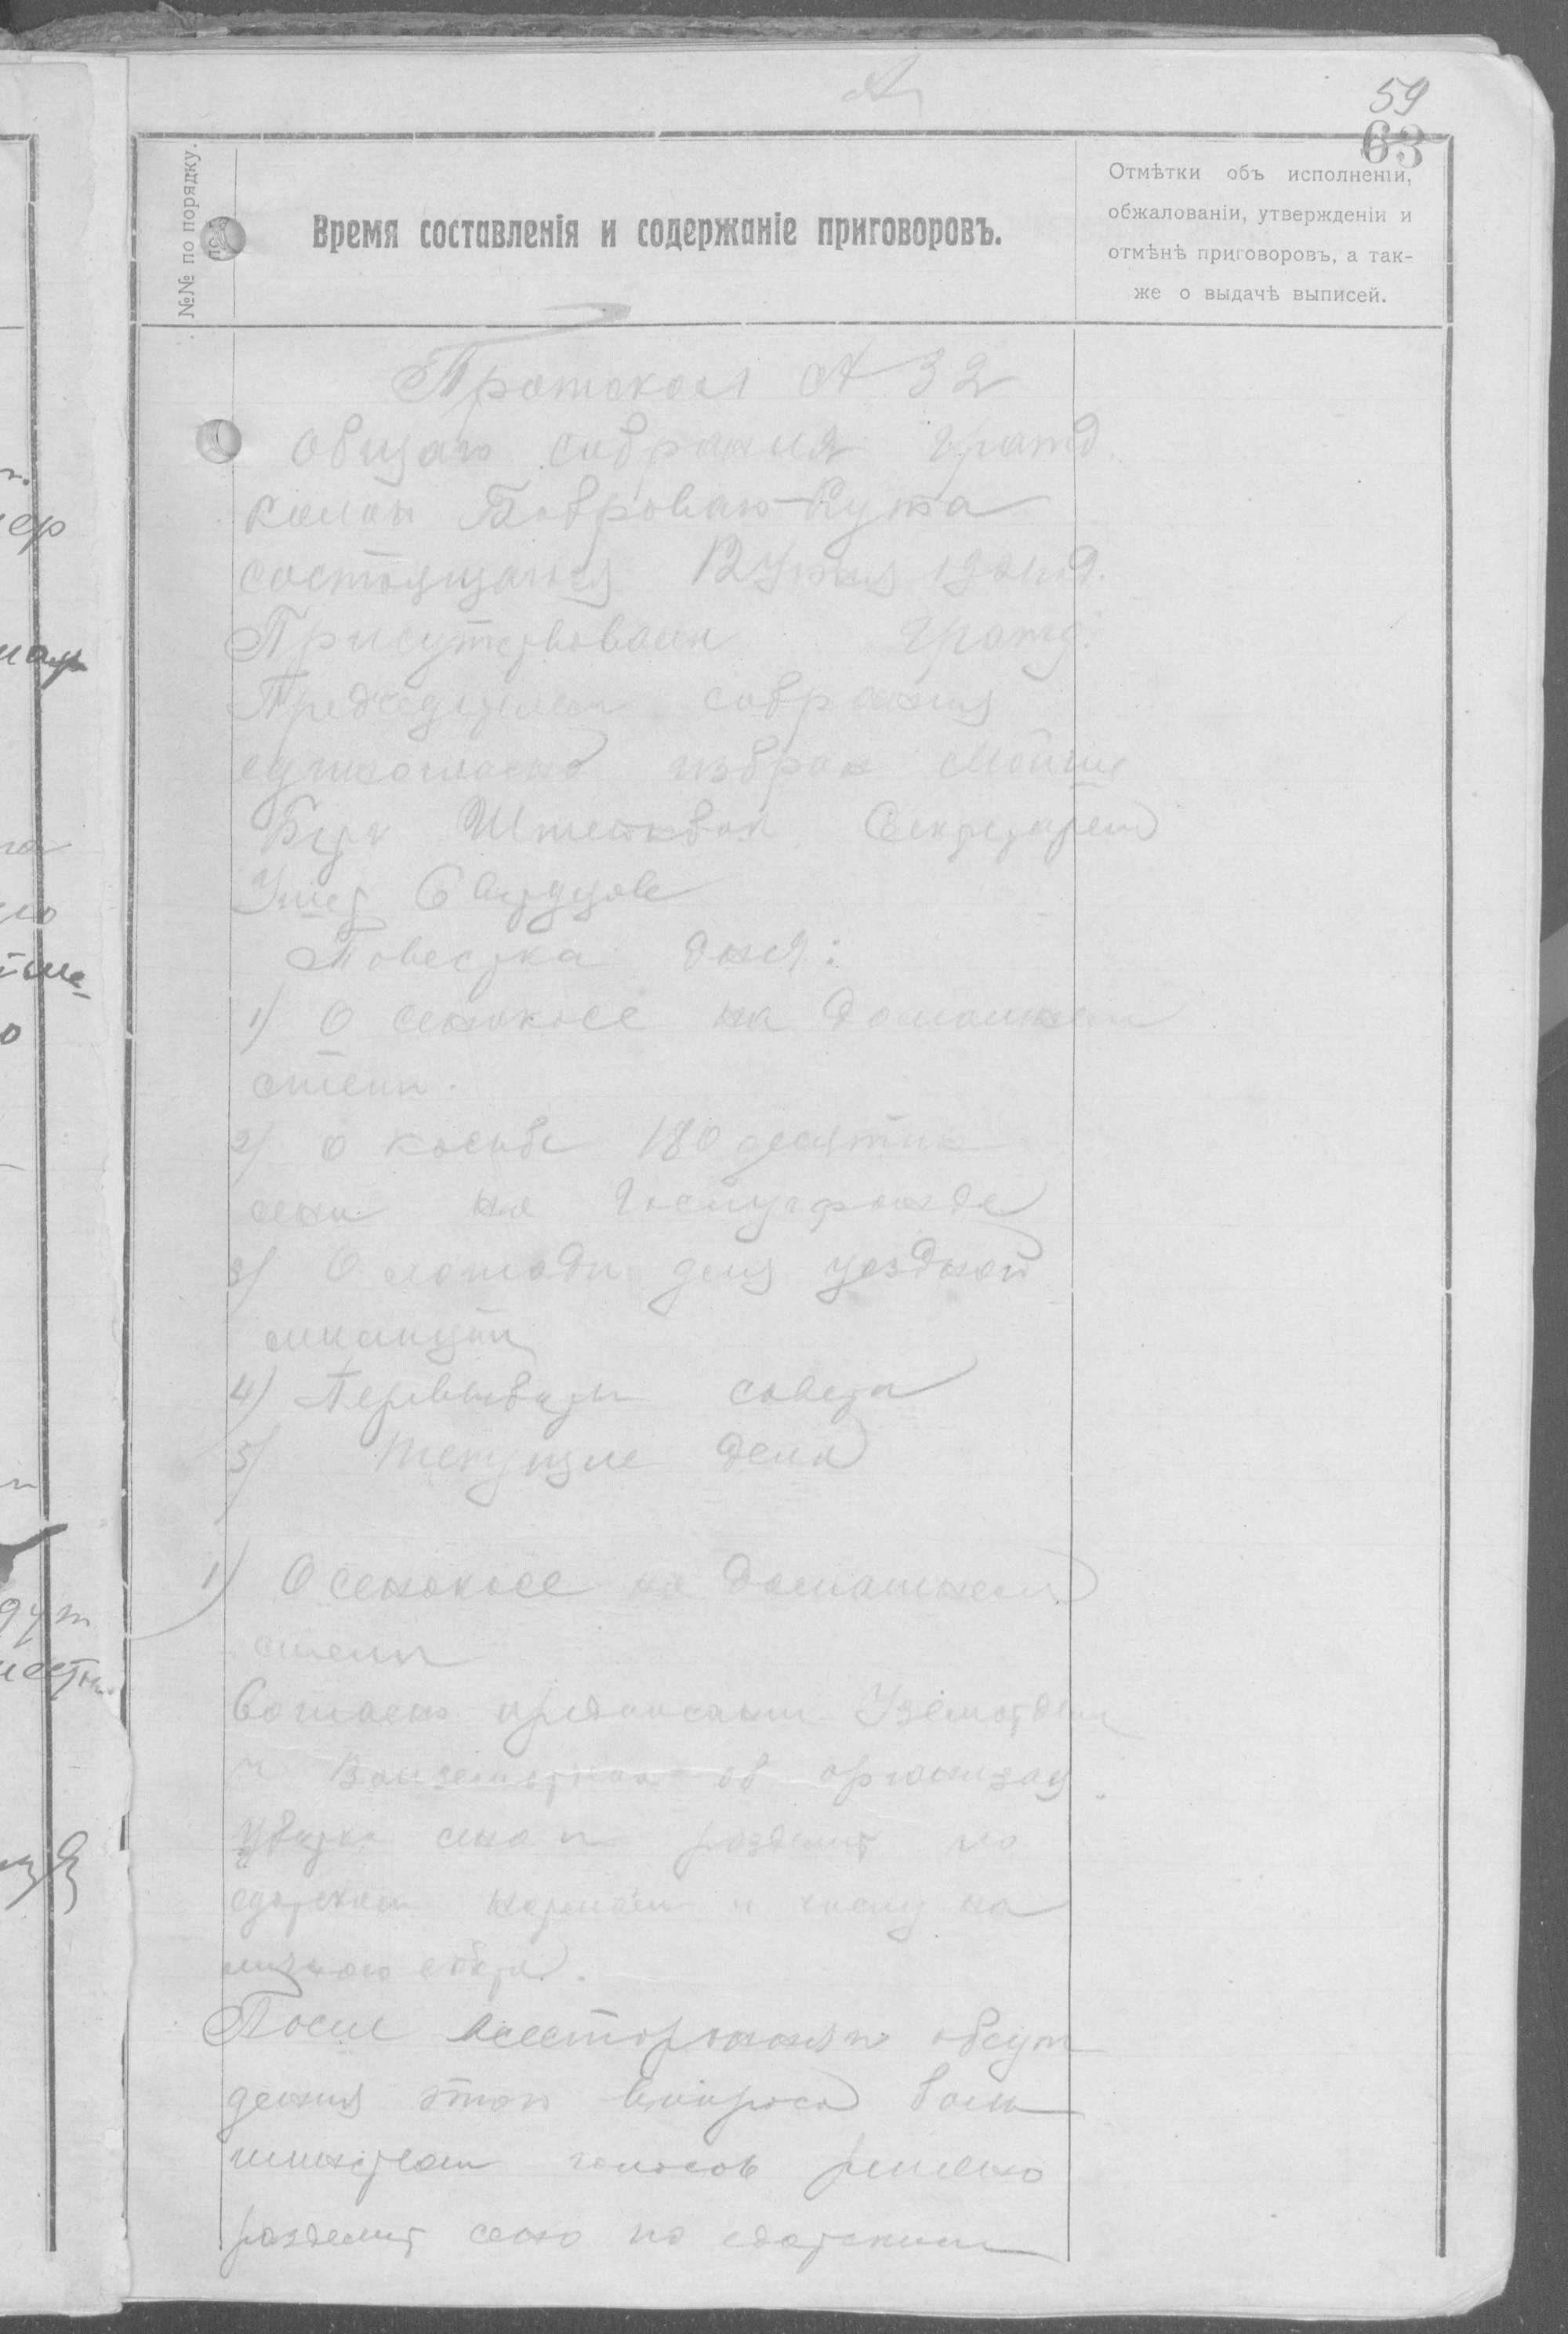 59
63
№№ по порядку.
Время составленія и содержаніе приговоровъ.
Отмѣтки объ исполненіи,
обжалованіи, утвержденіи и
отмѣнѣ приговоровъ, а так-
же о выдачѣ выписей.
Протокол № 32
общаго собрания гражд.
колон Боброваго-Кута
состоящагося 12 1921 год.
Присутствовали гражд.
Председателем собрания
единогласно избран Мойше
Бер Секретарем
Повестка дня:
1) О сенокосе на домашнем
степи.
2) О косьбе 180 десятин
сена на Госпугфонде
3) О лошади для уездной
милиции
4) Перевыборы совета
5) Текущие дела
1) О сенокосе на домашнем
степи
Согласно предписании Уземотдела
и об организац.
уборки сена и разделит по
едоцким нормам и числу на
личного скота.
После всестороннян обсуж
дения этот вопроса боль
шинством голосов решено
разделит сено по едоцким